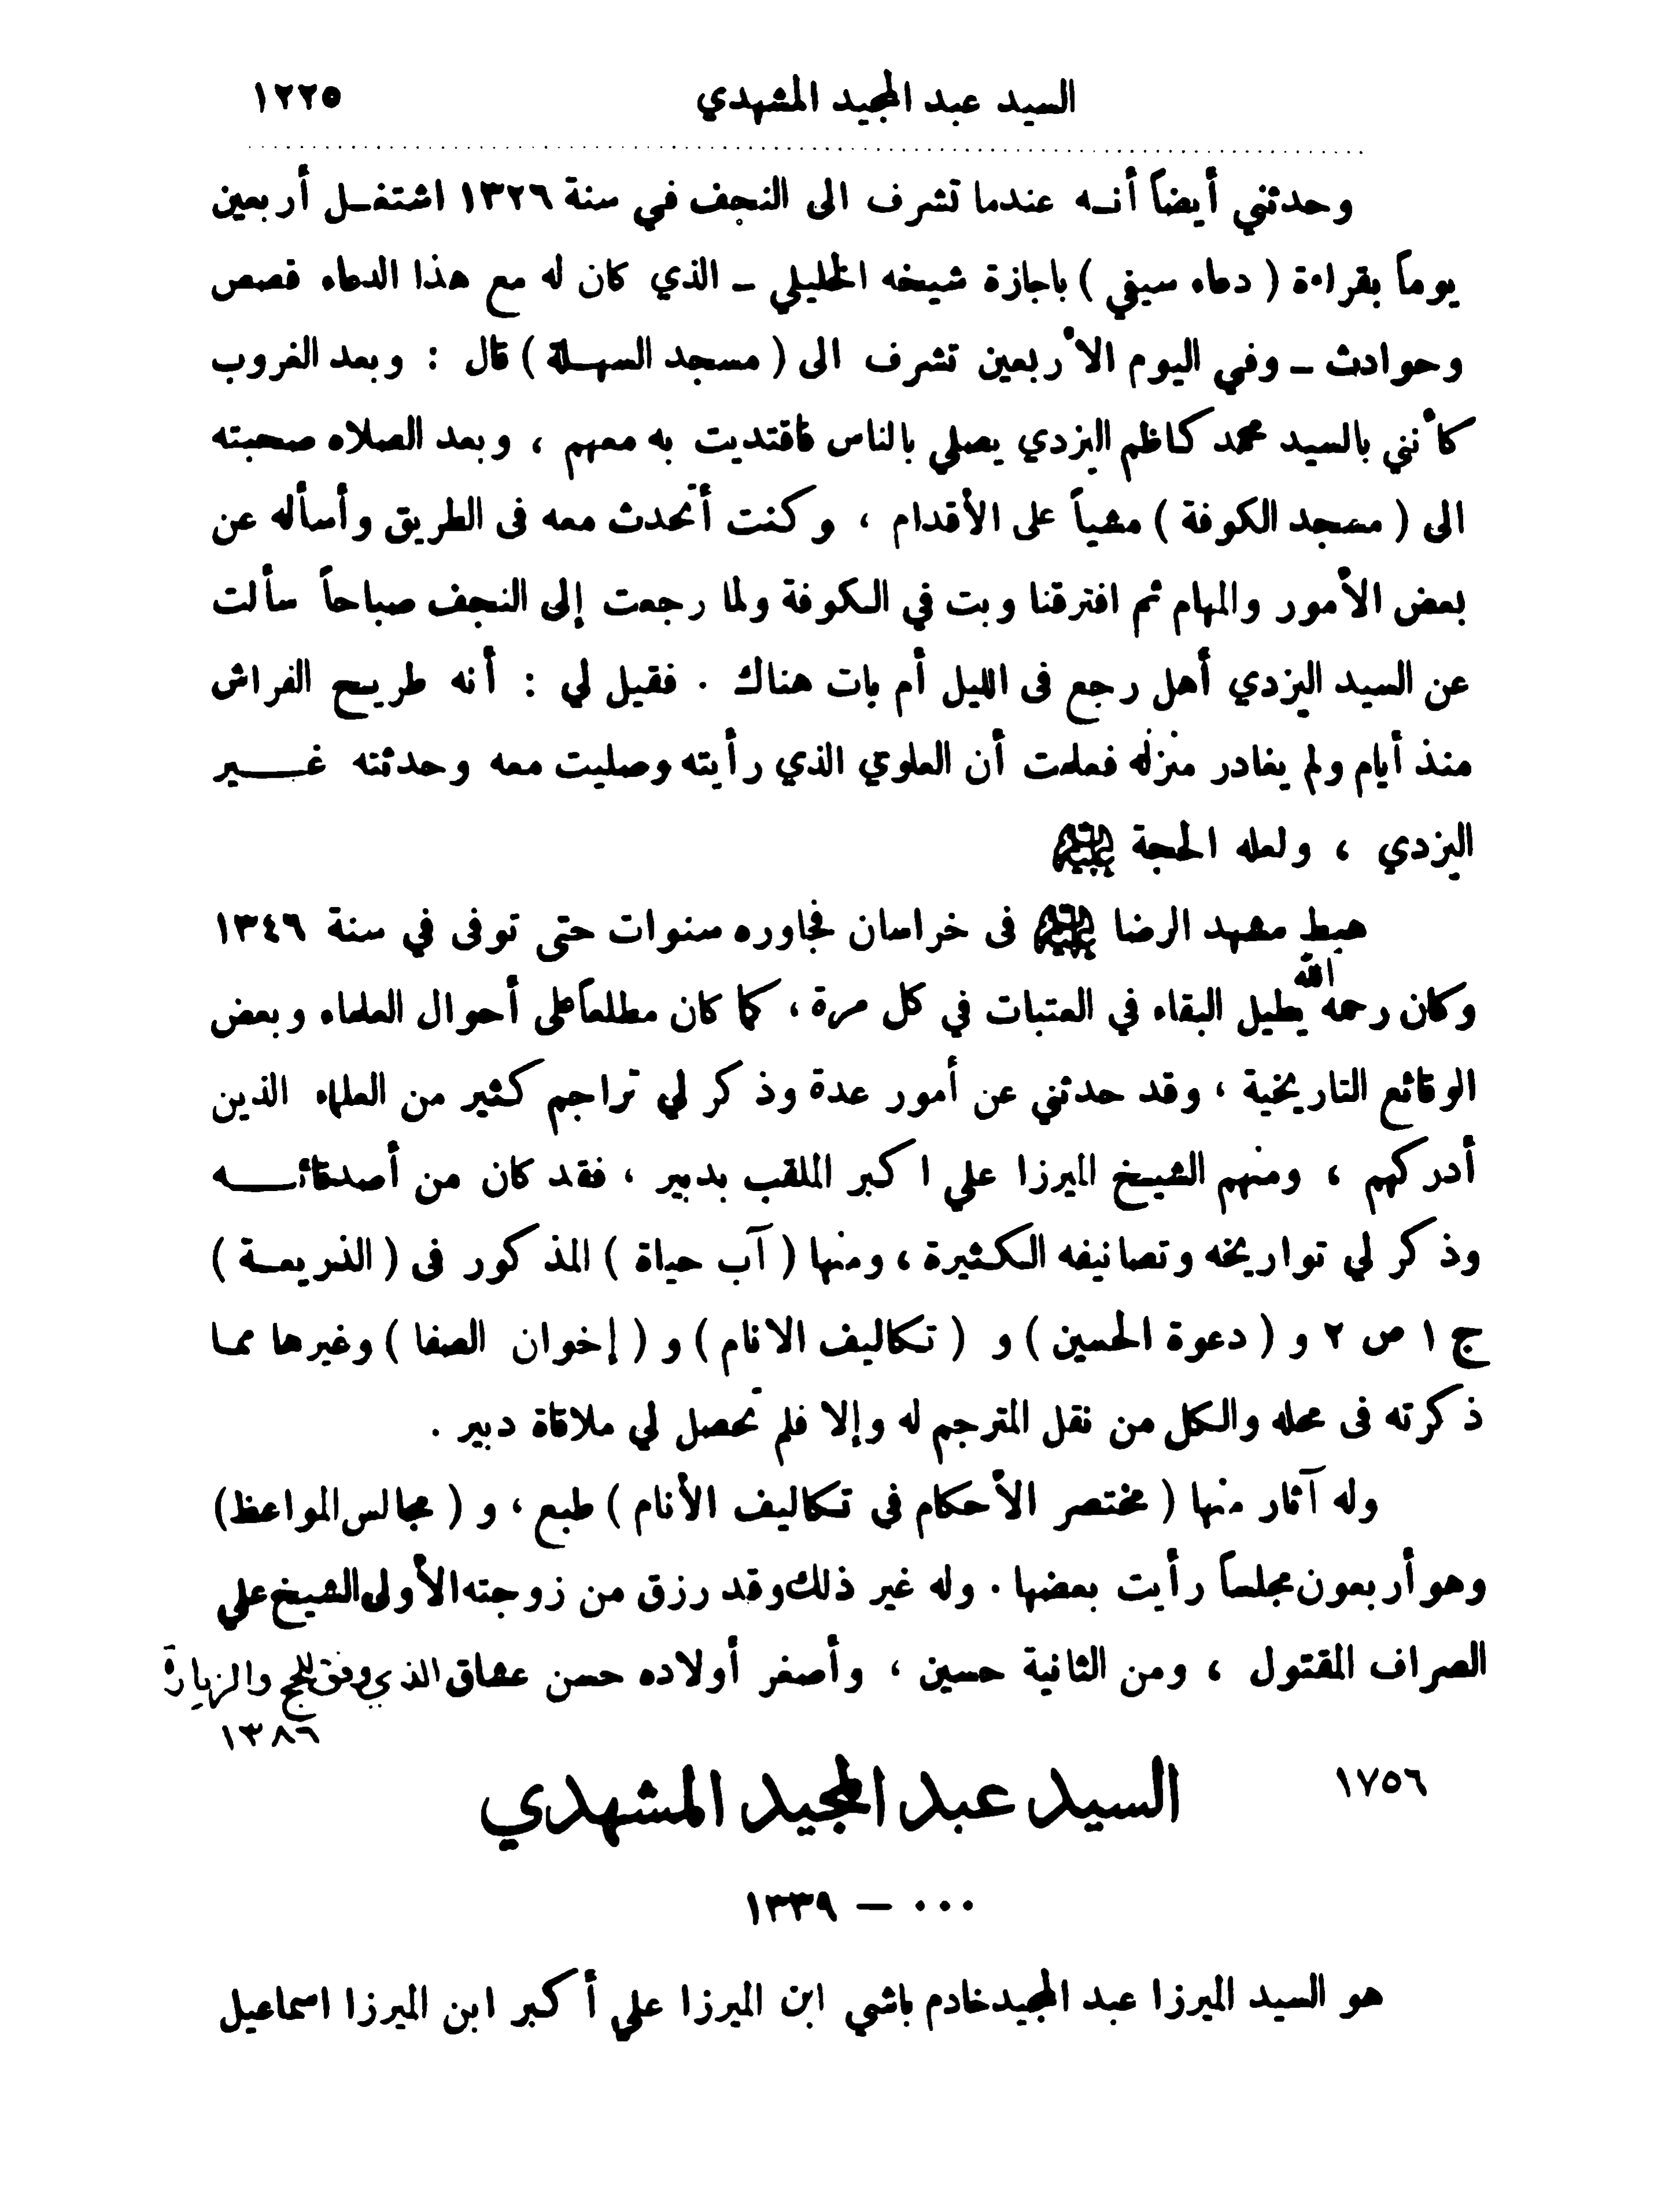 السيد عبد المجيد المشهدي ١٢٢٥
وحدثني أيضاً أنه عندما تشرف الى النجف في سنة ١٣٢٦ اشتغل أربعين
يوماً بقراءة ( دعاء سيفي ) باجازة شيخه الخليلي ـ الذي كان له مع هذا الدعاء قصص
وحوادث ـ وفي اليوم الأربعين تشرف الى ( مسجد السهلة ) قال : وبعد الغروب
كأنني بالسيد محمد كاظم اليزدي يصلي بالناس فاقتديت به معهم ، وبعد الصلاه صحبته
الى ( مسجد الكوفة ) مشياً على الأقدام ، وكنت أتحدث معه فى الطريق وأسأله عن
بعض الأمور والمهام ثم افترقنا وبت في الكوفة ولما رجعت إلى النجف صباحاً سألت
عن السيد اليزدي أهل رجع فى الليل أم بات هناك . فقيل لي : أنه طريح الفراش
منذ أيام ولم يغادر منزله فعلمت أن العلوي الذي رأيته وصليت معه وحدثته غير
اليزدي ، ولعله الحجة عليه السلام
هبط مشهد الرضا عليه السلام فى خراسان فجاوره سنوات حتى توفى في سنة ١٣٤٦
وكان رحمه الله يطيل البقاء في العتبات في كل مرة ، كما كان مطلعاً على أحوال العلماء وبعض
الوقائع التاريخية ، وقد حدثني عن أمور عدة وذكر لي تراجم كثير من العلماء الذين
أدركهم ، ومنهم الشيخ الميرزا علي اكبر الملقب بدبير ، فقد كان من أصدقائه
وذكر لي تواريخه وتصانيفه الكثيرة ، ومنها ( آب حياة ) المذكور فى ( الذريعة )
ج ١ ص ٢ و ( دعوة الحسين ) و ( تكاليف الانام ) و ( إخوان الصفا ) وغيرها مما
ذكرته فى محله والكل من نقل المترجم له وإلا فلم تحصل لي ملاقاة دبير .
وله آثار منها ( مختصر الأحكام في تكاليف الأنام ) طبع ، و ( مجالس المواعظ )
وهو أربعون مجلساً رأيت بعضها . وله غير ذلك وقد رزق من زوجته الأولى الشيخ علي
الصراف المقتول ، ومن الثانية حسين ، وأصغر أولاده حسن عشاق الذي وفق للحج والزيارة
١٣٨٦
١٧٥٦ السيد عبد المجيد المشهدي
٠٠٠ — ١٣٣٩
هو السيد الميرزا عبد المجيد خادم باشي ابن الميرزا علي أكبر ابن الميرزا اسماعيل